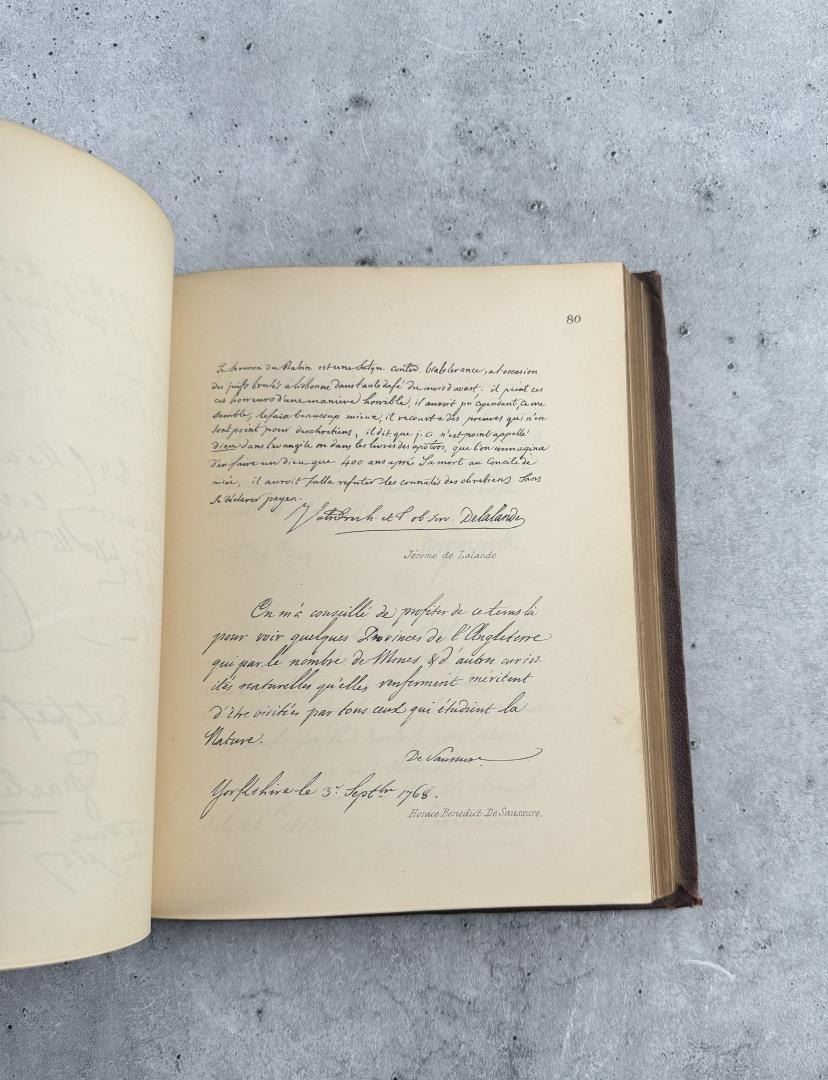 80
Le sermon du Rabin est une Satyre contre l'intolerance, a l'occasion
des juifs brulés a lisbonne dans l'auto dafé du mois d'avant. il peint ces
ces horreurs d'une maniere horrible, il auroit pu cependant, ce me
semble, le faire beaucoup mieux, il recourt a des preuves qui n'en
sont point pour des chretiens, il dit que j. C. n'est point appellé
dieu dans l'evangile ni dans les livres des apotres, que l'on n'imagina
d'en faire un dieu que 400 ans après Sa mort au Concile de
nicée, il auroit fallu refuter les des chretiens Sans
se déclarer payen.
et Delalande
Jérome de Lalande.
On m'a conseillé de profiter de ce tems là
pour voir quelques Provinces de l'Angleterre
qui par le nombre de Mines, & d'autres curio
ités naturelles qu'elles renferment méritent
d'être visitées par tous ceux qui étudient la
Nature.
De Saussure
Yorkshire le 3.e Septbr 1768.
Horace Benedict De Saussure.
1801